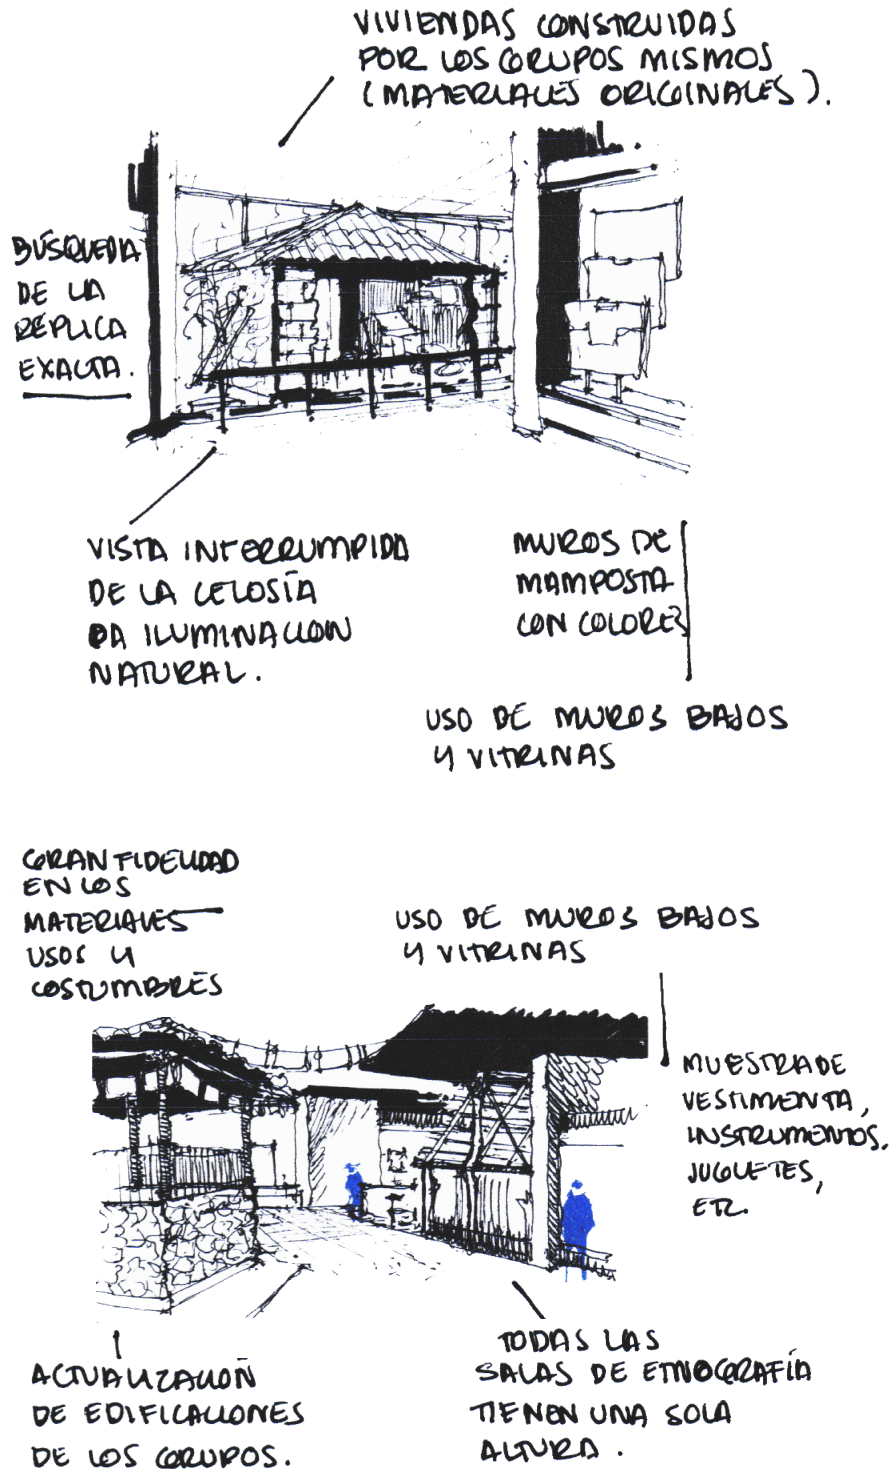 VIVIENDAS CONSTRUIDAS
POR LOS GRUPOS MISMOS
(MATERIALES ORIGINALES).
BÚSQUEDA
DE LA
RÉPLICA
EXACTA.
VISTA INTERRUMPIDA
DE LA CELOSÍA
DA ILUMINACION
NATURAL.
MUROS DE
MAMPOSTA
CON COLORES
USO DE MUROS BAJOS
Y VITRINAS
GRAN FIDELIDAD
EN LOS
MATERIALES
USOS Y
COSTUMBRES
USO DE MUROS BAJOS
Y VITRINAS
MUESTRA DE
VESTIMENTA,
INSTRUMENTOS,
JUGUETES,
ETC.
ACTUALIZACIÓN
DE EDIFICACIONES
DE LOS GRUPOS.
TODAS LAS
SALAS DE ETNOGRAFÍA
TIENEN UNA SOLA
ALTURA.